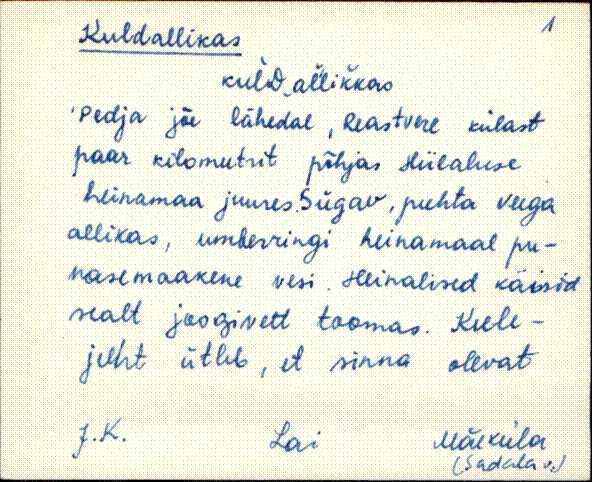 1
Kuldallikas
kulD allikkas
Pedja jõe lähedal, Reastvere külast
paar kilomeetrit põhjas Hiiealuse
heinamaa juures. Sügav, puhta veega
allikas, umberringi heinamaal pu-
nasemaakene vesi. Heinalised käisid
sealt joogivett toomas. Keele-
juht ütleb, et sinna olevat
J.K. Lai Mäeküla
(Sadala v.)